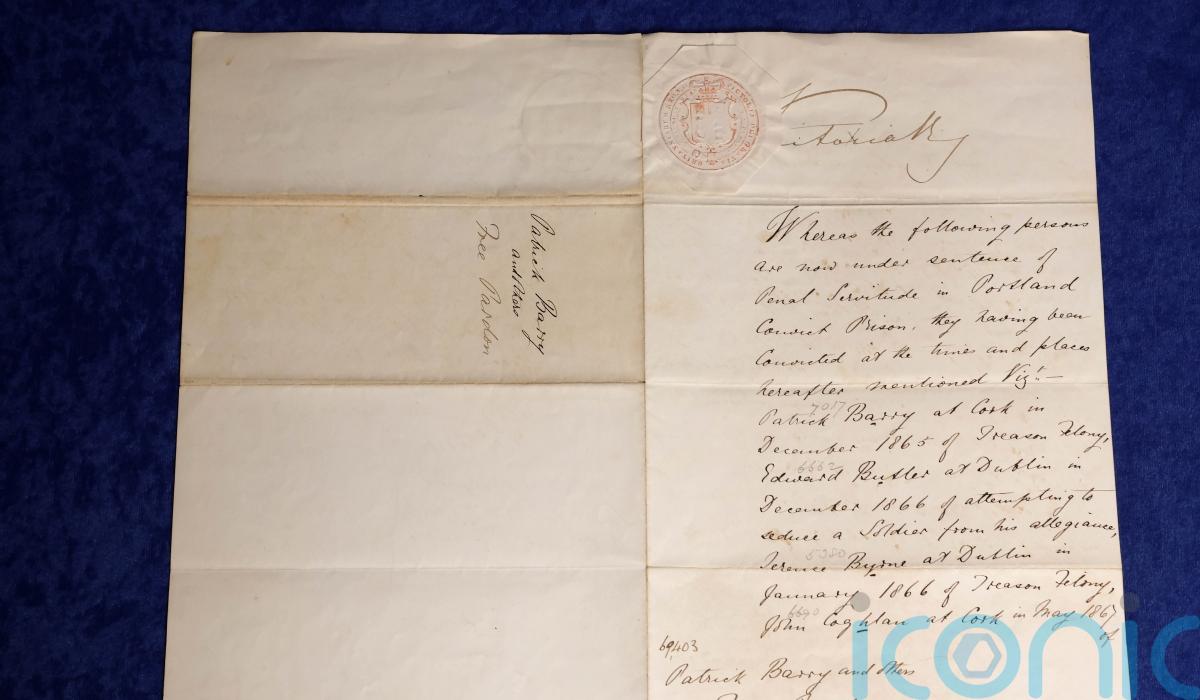 Victoria R
Patrick Barry
and others
Free Pardon
Whereas the following persons
are now under sentence of
Penal Servitude in Portland
Convict Prison, they having been
Convicted at the times and places
hereafter mentioned Vizt.—
7017
Patrick Barry at Cork in
December 1865 of Treason Felony,
6662
Edward Butler at Dublin in
December 1866 of attempting to
seduce a Soldier from his allegiance,
5980
Terence Byrne at Dublin in
January 1866 of Treason Felony,
6690
John Coghlan at Cork in May 1867
of
69403
Patrick Barry and others
iconic